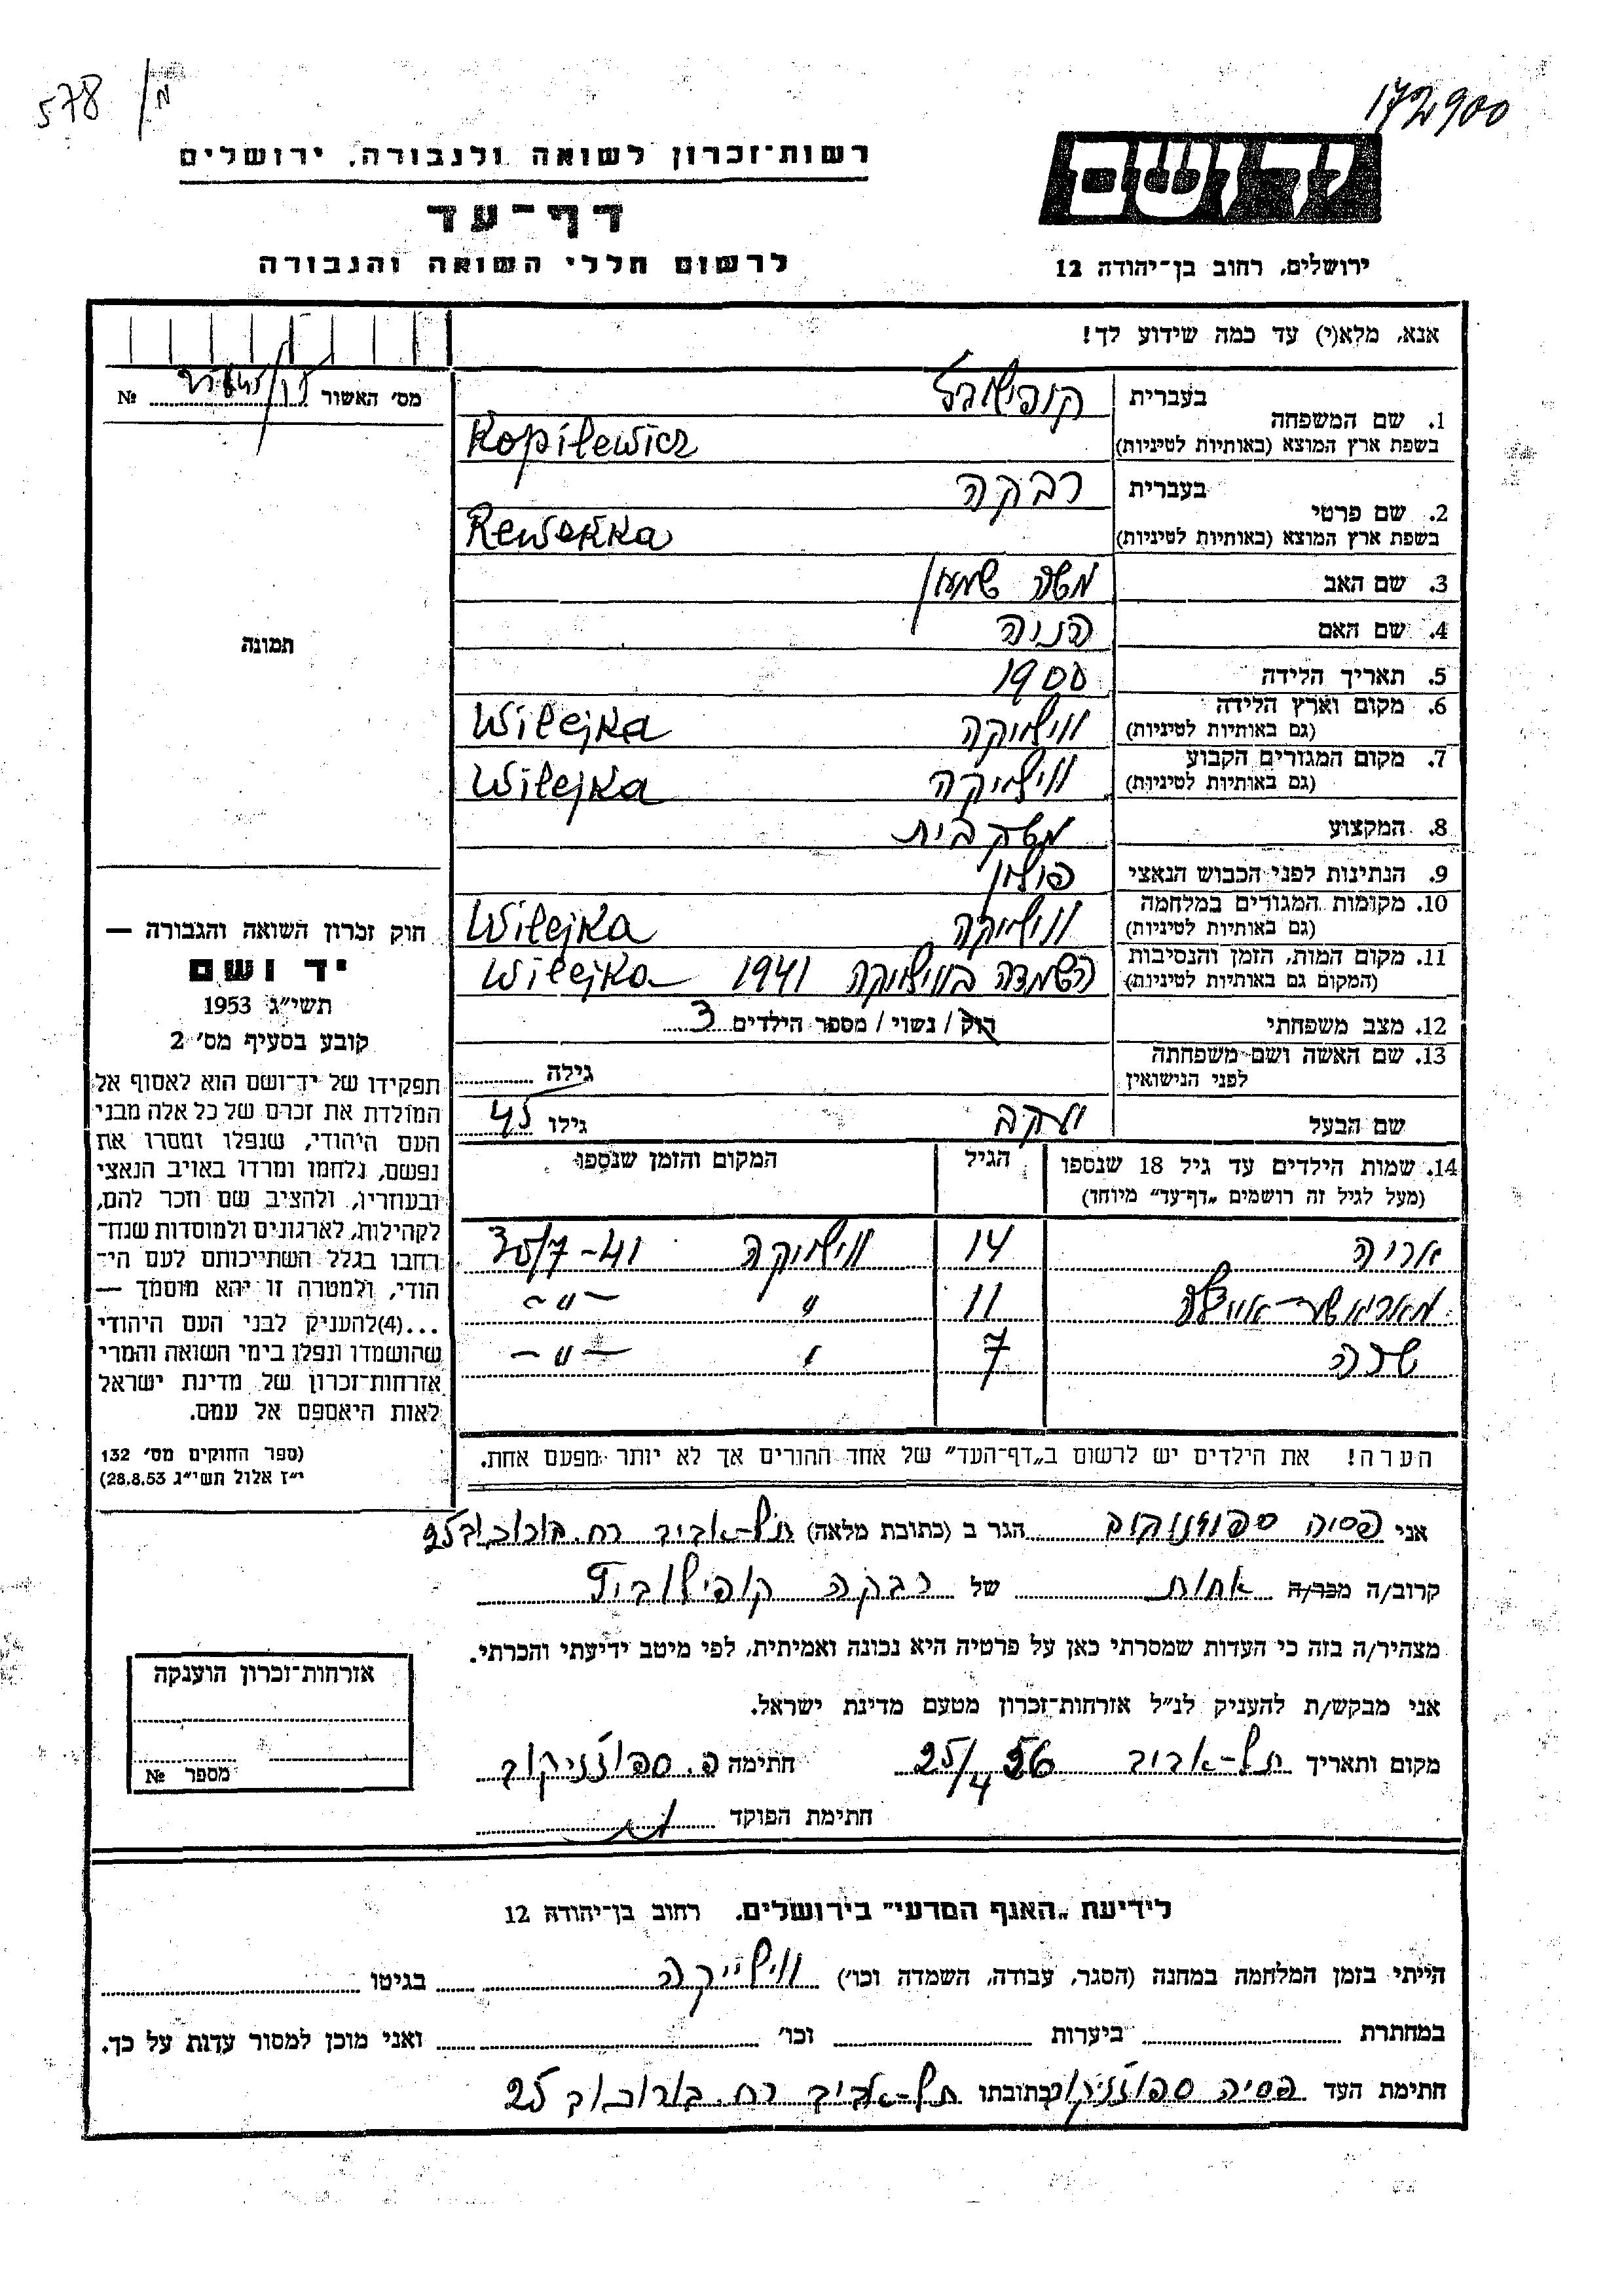 578 /מ
172900
רשות־זכרון לשואה ולגבורה, ירושלים
יד ושם
דף־עד
לרשום חללי השואה והגבורה
ירושלים, רחוב בן־יהודה 12
אנא, מלא(י) עד כמה שידוע לך!
מס׳ האשור № 
1. שם המשפחה בעברית
בשפת ארץ המוצא (באותיות לטיניות) Kopilewicz
2. שם פרטי בעברית רבקה
בשפת ארץ המוצא (באותיות לטיניות) Rewekka
3. שם האב משה שמעון
4. שם האם הניה
5. תאריך הלידה 1900
6. מקום וארץ הלידה (גם באותיות לטיניות) ווילייקה Wilejka
7. מקום המגורים הקבוע (גם באותיות לטיניות) ווילייקה Wilejka
8. המקצוע משק בית
9. הנתינות לפני הכבוש הנאצי פולין
10. מקומות המגורים במלחמה (גם באותיות לטיניות) ווילייקה Wilejka
11. מקום המות, הזמן והנסיבות (המקום גם באותיות לטיניות) השמדה בווילייקה 1941 Wilejka
12. מצב משפחתי רוק / נשוי / מספר הילדים 3
13. שם האשה ושם משפחתה לפני הנישואין גילה
שם הבעל יעקב גילו 45
14. שמות הילדים עד גיל 18 שנספו הגיל המקום והזמן שנספו
(מעל לגיל זה רושמים „דף־עד״ מיוחד)
אריה 14 ווילייקה 30/7-41
11 " -"-
שרה 7 " -"-
הערה! את הילדים יש לרשום ב„דף־העד״ של אחד ההורים אך לא יותר מפעם אחת.
תמונה
חוק זכרון השואה והגבורה —
יד ושם
תשי״ג 1953
קובע בסעיף מס׳ 2
תפקידו של יד־ושם הוא לאסוף אל
המולדת את זכרם של כל אלה מבני
העם היהודי, שנפלו ומסרו את
נפשם, נלחמו ומרדו באויב הנאצי
ובעוזריו, ולהציב שם וזכר להם,
לקהילות, לארגונים ולמוסדות שנח־
רבו בגלל השתייכותם לעם הי־
הודי, ולמטרה זו יהא מוסמך —
...(4) להעניק לבני העם היהודי
שהושמדו ונפלו בימי השואה והמרי
אזרחות־זכרון של מדינת ישראל
לאות היאספם אל עמם.
(ספר החוקים מס׳ 132
י״ז אלול תשי״ג 28.8.53)
אני פסיה ספוזניקוב הגר ב (כתובת מלאה) תל-אביב רח. בורוכוב 25
קרוב/ה מכר/ה אחות של רבקה קופילוביץ
מצהיר/ה בזה כי העדות שמסרתי כאן על פרטיה היא נכונה ואמיתית, לפי מיטב ידיעתי והכרתי.
אני מבקש/ת להעניק לנ״ל אזרחות־זכרון מטעם מדינת ישראל.
מקום ותאריך תל-אביב 25/4 56 חתימה פ. ספוזניקוב
חתימת הפוקד
אזרחות־זכרון הוענקה
מספר №
לידיעת „האגף המדעי״ בירושלים, רחוב בן־יהודה 12
הייתי בזמן המלחמה במחנה (הסגר, עבודה, השמדה וכו׳) ווילייקה בגיטו
במחתרת ביערות וכו׳ ואני מוכן למסור עדות על כך.
חתימת העד פסיה ספוזניקוב וכתובתו תל-אביב רח. בורוכוב 25